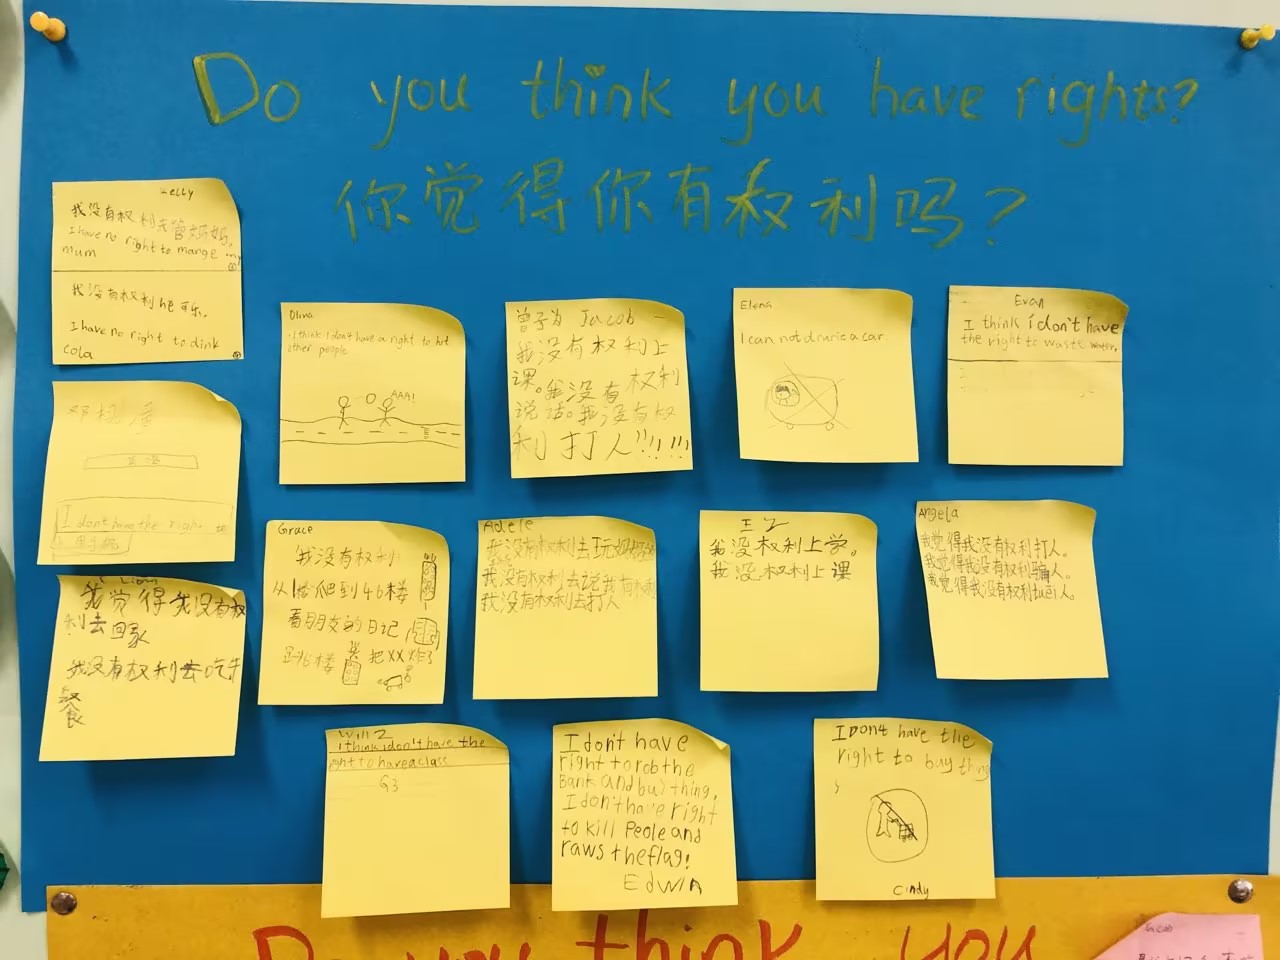 Do you think you have rights?
你觉得你有权利吗？
Kelly
我没有权利去管妈妈。
I have no right to mange my
mum
我没有权利he可乐。
I have no right to dink
Cola
Olivia
I think I don't have a right to hit
other people
AAA!
曾子为 Jacob
我没有权利上
课。我没有权利
说话。我没有权
利打人!!!!!!
Elena
I can not drive a car.
Evan
I think i don't have
the right to waste water.
邓
I dont have the right to
Grace
我没有权利
从1楼爬到46楼
看朋友的日记
跳46楼
把XX炸了
Adele
我没有权利去玩
我没有权利去说我有权利
我没有权利去打人
王乙
我没权利上学。
我没权利上课
Angela
我觉得我没有权利打人。
我觉得我没有权利骗人。
我觉得我没有权利人。
Lion
我觉得我没有权
利去回家
我没有权利去吃午
餐
Will Z
I think i don't have the
right to have a class
G3
I don't have
right to rob the
Bank and buy thing.
I don't have right
to kill Peole and
raws the flag!
Edwin
I Dont have the
right to buy thing
Cindy
Do you think you
Jacob